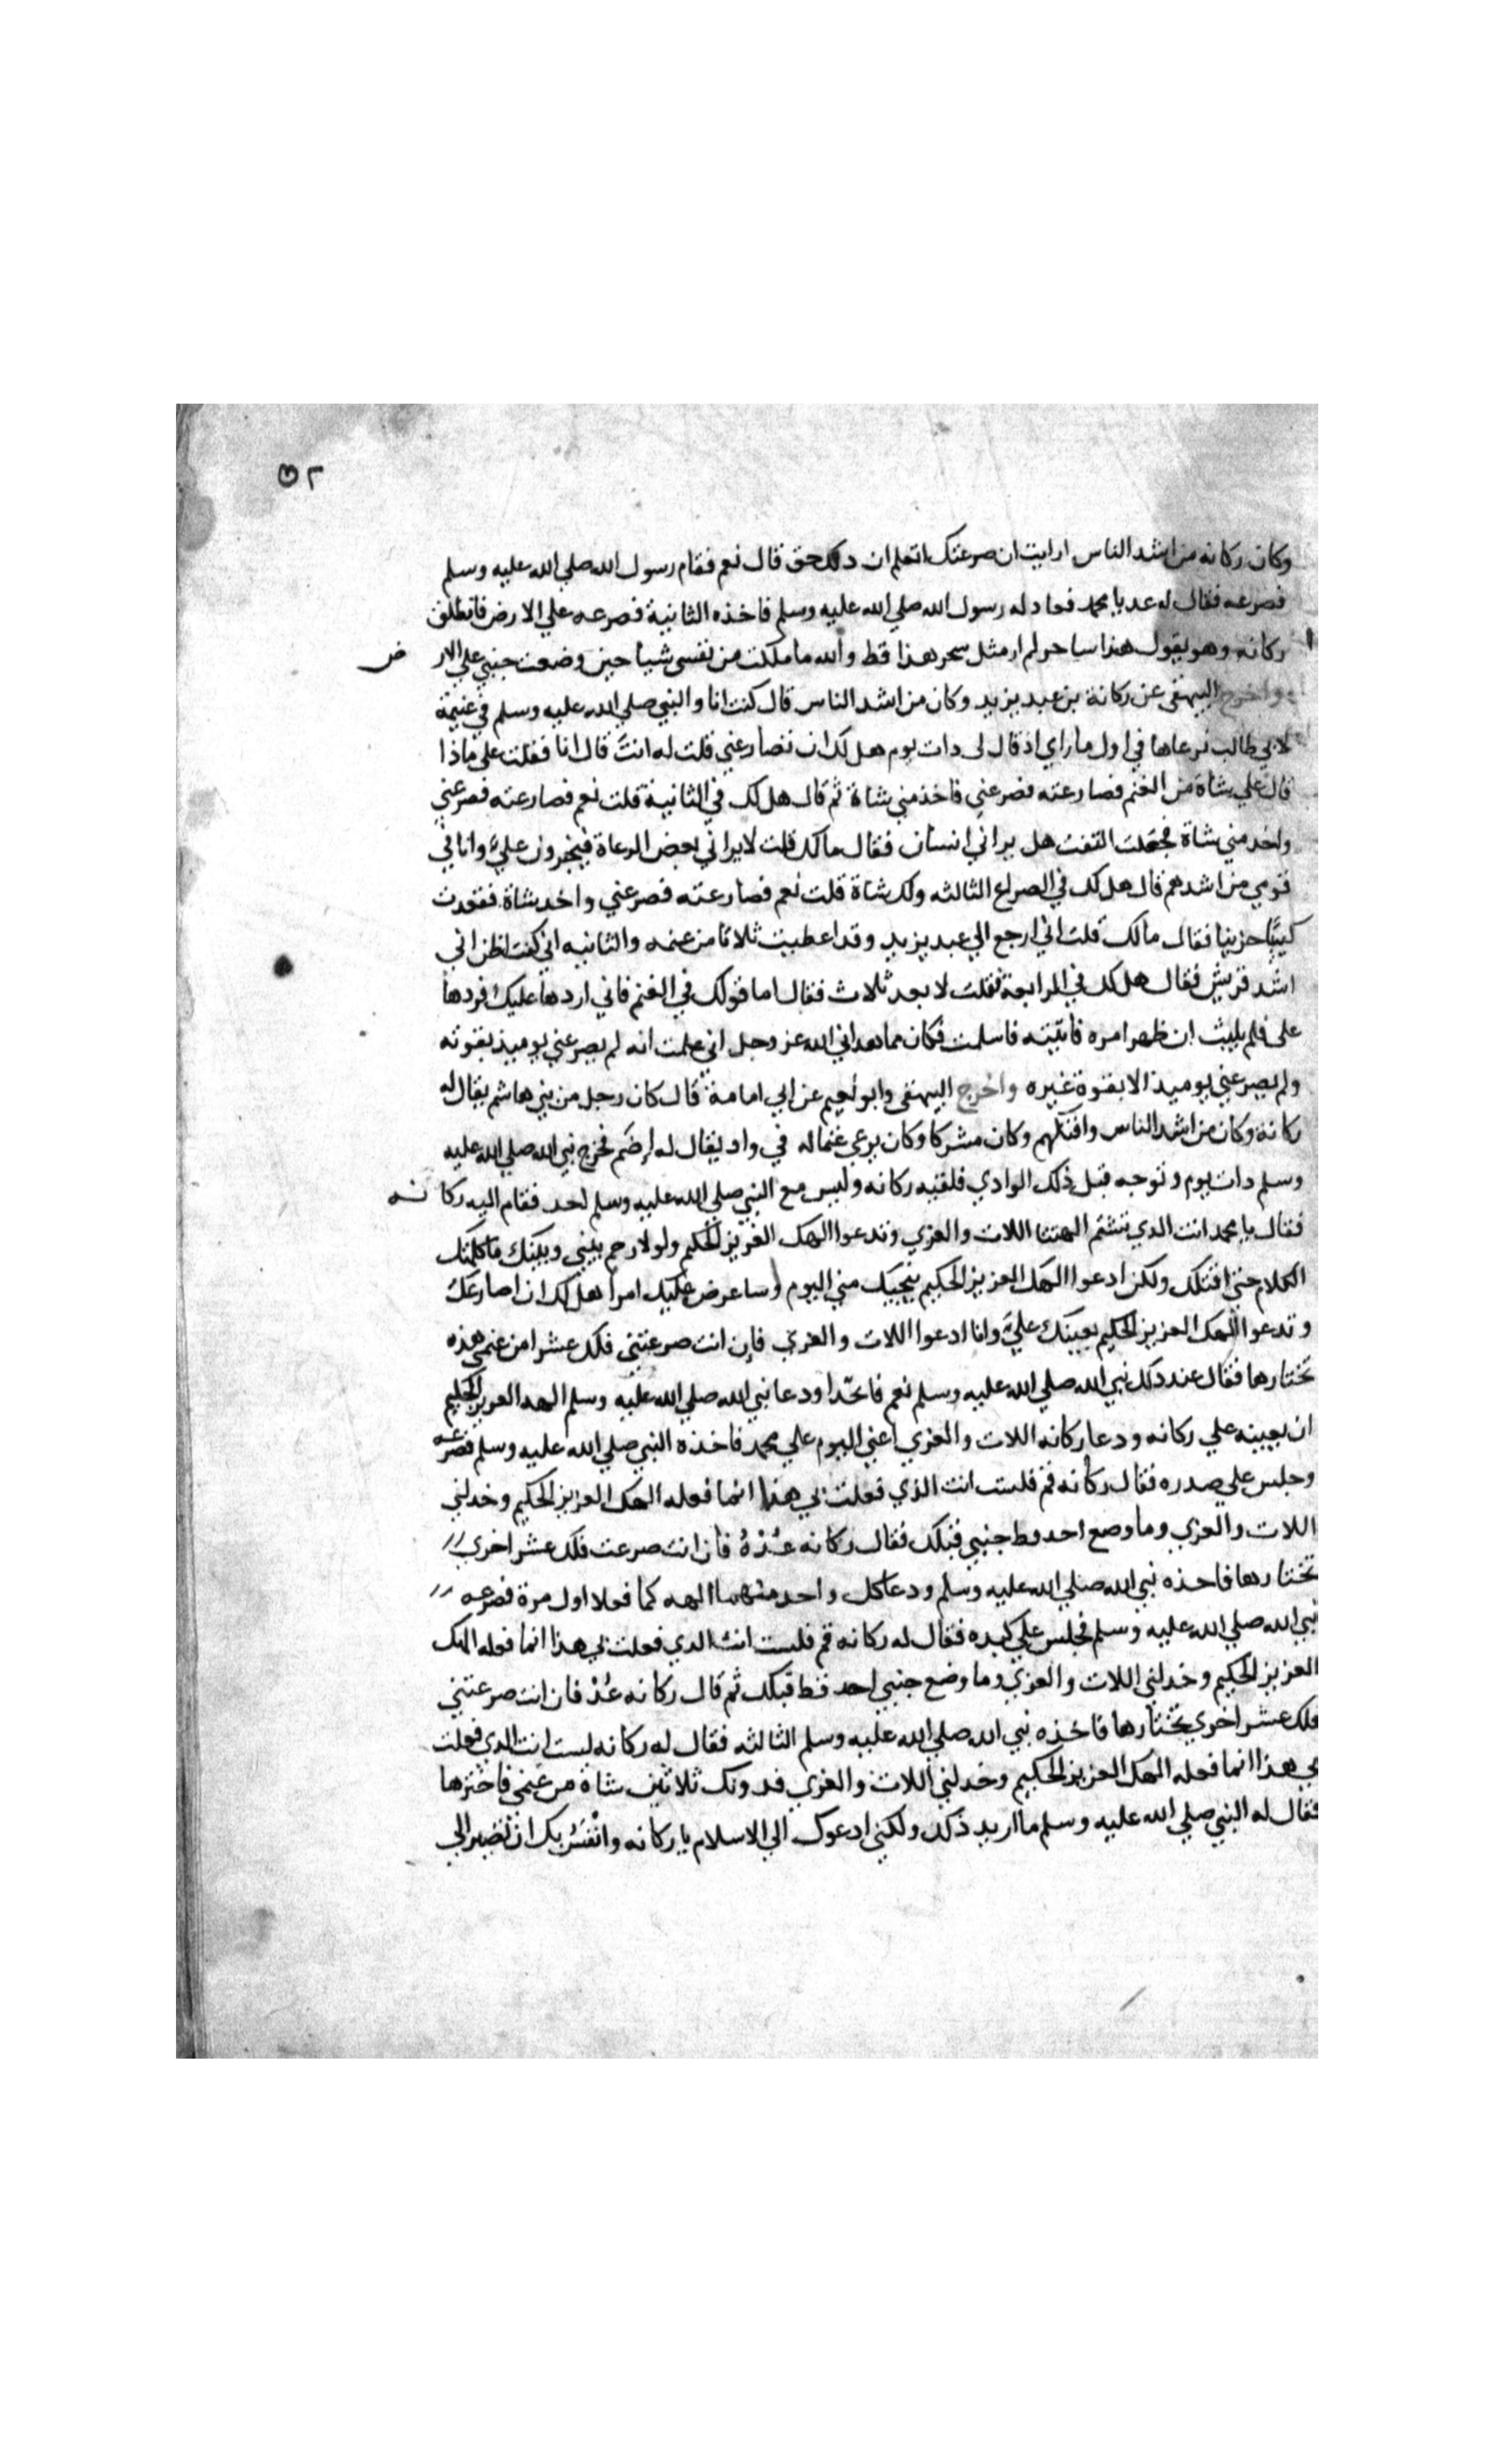 ٥٢
وكان ركانه من اشد الناس ارايت ان صرعتك اتعلم ان ذلك حق قال نعم فقام رسول الله صلي الله عليه وسلم
فصرعه فقال له عد يا محمد فعاد له رسول الله صلي الله عليه وسلم فاخذه الثانية فصرعه علي الارض فانطلق
ركانه وهو يقول هذا ساحر لم ار مثل سحر هذا قط والله ما ملكت من نفسي شيا حين وضعت جنبي علي الار ض
واخرج البيهقى عن ركانة بن عبد يزيد وكان من اشد الناس قال كنت انا والنبي صلي الله عليه وسلم في غنيمة
لابي طالب نرعاها في اول ما راي اذ قال لي دات يوم هل لك ان تصارعني قلت له انتَ قال انا فقلت على ماذا
قال علي شاة من الغنم فصارعته فصرعني فاخذ مني شاة ثم قال هل لك في الثانية قلت نعم فصارعته فصرعني
واخد مني شاة فجعلت التفت هل يراني انسان فقال مالك قلت لا يراني بعض الرعاة فيجترون عليّ وانا في
قومي من اشدهم قال هل لك في الصراع الثالثه ولك شاة قلت نعم فصارعته فصرعني واخد شاة فقعدت
كييبًا حزينا فقال مالك قلت اني ارجع الي عبد يزيد وقد اعطيت ثلاثا من غنمه والثانيه اني كنت اظن اني
اشد قريش فقال هل لك في الرابعة فقلت لا بعد ثلاث فقال اما قولك في الغنم فاني اردها عليك فردها
على فلم يلبث ان ظهر امره فاتيته فاسلمت فكان مما هداني الله عز وجل اني علمت انه لم يصرعني يوميذ بقوته
ولم يصرعني يوميذ الا بقوة غيره واخرج البيهقى وابو نعيم عن ابي امامة قال كان رجل من بني هاشم يقال له
ركانه وكان من اشد الناس وافتكهم وكان مشركا وكان يرعي غنما له في واد يقال له إضَم فخرج نبي الله صلي الله عليه
وسلم دات يوم وتوجه قبل ذلك الوادي فلقيه ركانه وليس مع النبي صلي الله عليه وسلم احد فقام اليه ركا نه
فقال يا محمد انت الدي تشتم الهتنا اللات والعزي وتدعوا الهك العزيز الحكيم ولولا رحم بيني وبينك ما كلمتك
الكلام حتى اقتلك ولكن ادعوا الهك العزيز الحكيم ينجيك مني اليوم وساعرض عليك امرا هل لك ان اصارعك
وتدعوا الهك العزيز الحكيم يعينك عليّ وانا ادعوا اللات والعزي فإن انت صرعتني فلك عشرا من غنمي هذه
تختارها فقال عند ذلك نبي الله صلي الله عليه وسلم نعم فاتخّدا ودعا نبي الله صلي الله عليه وسلم الهه العزيز الحكيم
ان يعينه علي ركانه ودعا ركانه اللات والعزي اعني اليوم علي محمد فاخذه النبي صلي الله عليه وسلم فصرعه
وجلس علي صدره فقال ركانه قم فلست انت الذي فعلت بي هذا انما فعله الهك العزيز الحكيم وخدلني
اللات والعزي وما وضع احد قط جنبي قبلك فقال ركانه عُدْهُ فان انت صرعت فلك عشر اخري
تختارها فاخذه نبي الله صلي الله عليه وسلم ودعا كل واحد منهما الهه كما فعلا اول مرة فصرعه
نبي الله صلي الله عليه وسلم فجلس علي كبده فقال له ركانه قم فلست انت الدي فعلت بي هذا انما فعله الهك
العزيز الحكيم وخدلني اللات والعزي وما وضع جنبي احد قط قبلك ثم قال ركانه عُدْ فان انت صرعتني
فلك عشر اخري تختارها فاخذه نبي الله صلي الله عليه وسلم الثالثه فقال له ركانه لست انت الدي فعلت
بي هذا انما فعله الهك العزيز الحكيم وخدلني اللات والعزي فدونك ثلاثين شاة من غنمي فاخترها
فقال له النبي صلي الله عليه وسلم ما اريد ذلك ولكني ادعوك الي الاسلام يا ركانه وانْفَسُ بك ان تصير الي